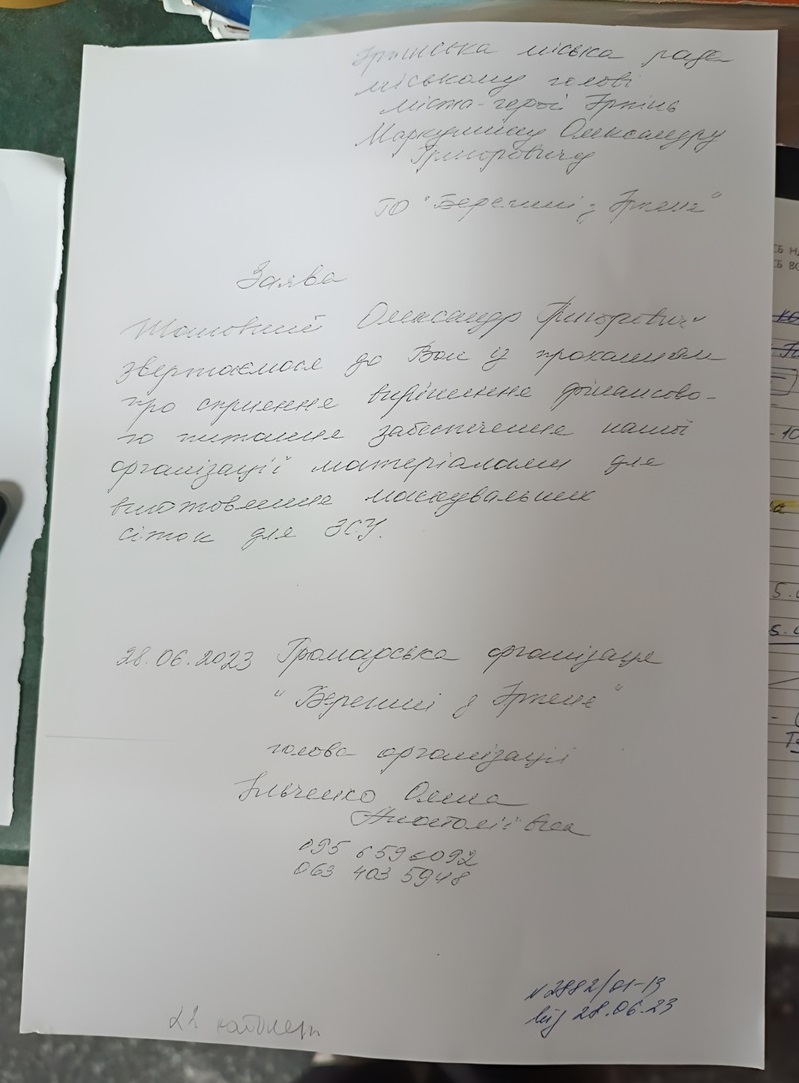 Ірпінська міська рада
міському голові
міста-герой Ірпінь
Маркушину Олександру
Григоровичу
ГО "Берегині з Ірпеня"
Заява
Шановний Олександр Григорович
звертаємося до Вас із проханням
про сприяння вирішення фінансово-
го питання забезпечення нашої
організації матеріалами для
виготовлення маскувальних
сіток для ЗСУ.
28.06.2023 Громадська організація
"Берегині з Ірпеня"
голова організації
Ільченко Олена
Анатоліївна
095 659 6092
063 403 5948
N2882/01-13
від 28.06.23
22